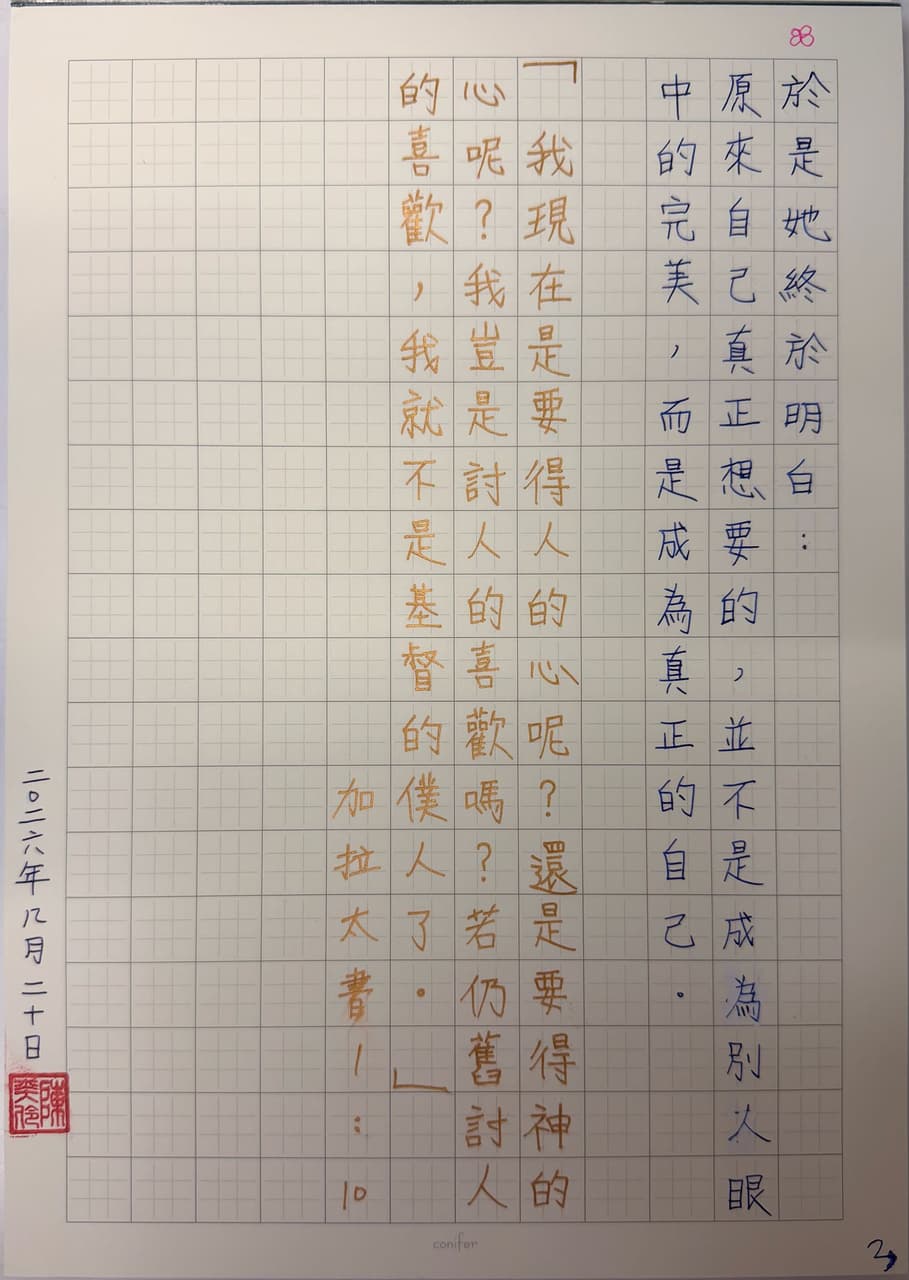 於是她終於明白：
原來自己真正想要的，並不是成為別人眼
中的完美，而是成為真正的自己．
「我現在是要得人的心呢？還是要得神的
心呢？我豈是討人的喜歡嗎？若仍舊討人
的喜歡？，我就不是基督的僕人了。」
加拉太書1:10
二〇二六年八月二十日
conifer